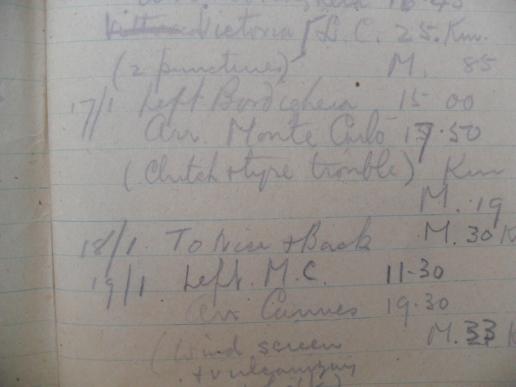 Victoria L.C. 25. Km.
(2 punctures) M. 85
17/1 Left Bordighera 15 00
Arr. Monte Carlo 17.50
(Clutch + type trouble) Km
M. 19
18/1. To Nice + Back M. 30 K
19/1 Left. M.C. 11.30
Arr Cannes 19.30
(Wind screen M. 33 K
+ vulcanizing